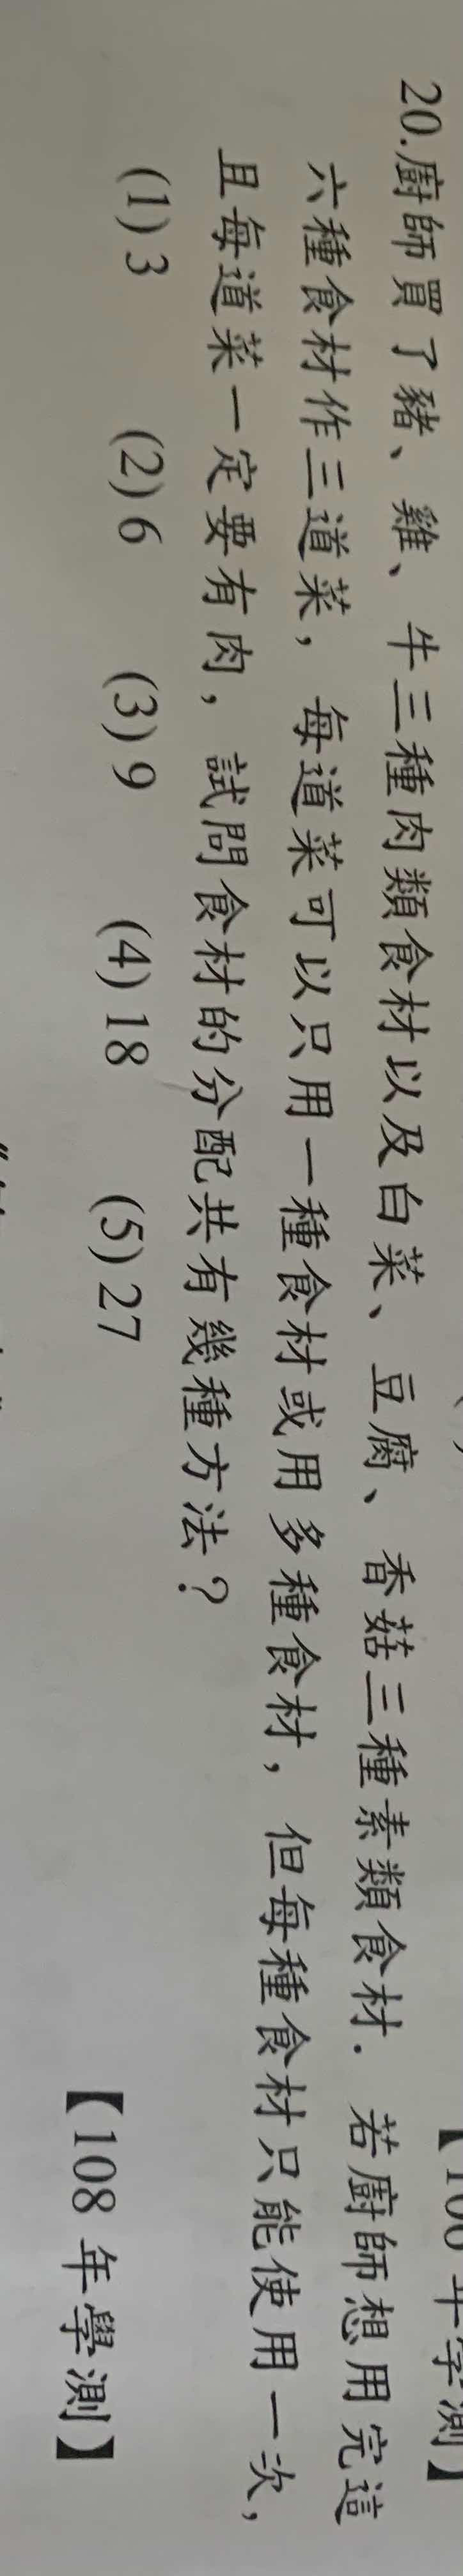 20.廚師買了豬、雞、牛三種肉類食材以及白菜、豆腐、香菇三種素類食材．若廚師想用完這
六種食材作三道菜，每道菜可以只用一種食材或用多種食材，但每種食材只能使用一次，
且每道菜一定要有肉，試問食材的分配共有幾種方法？
(1) 3 (2) 6 (3) 9 (4) 18 (5) 27
【108 年學測】